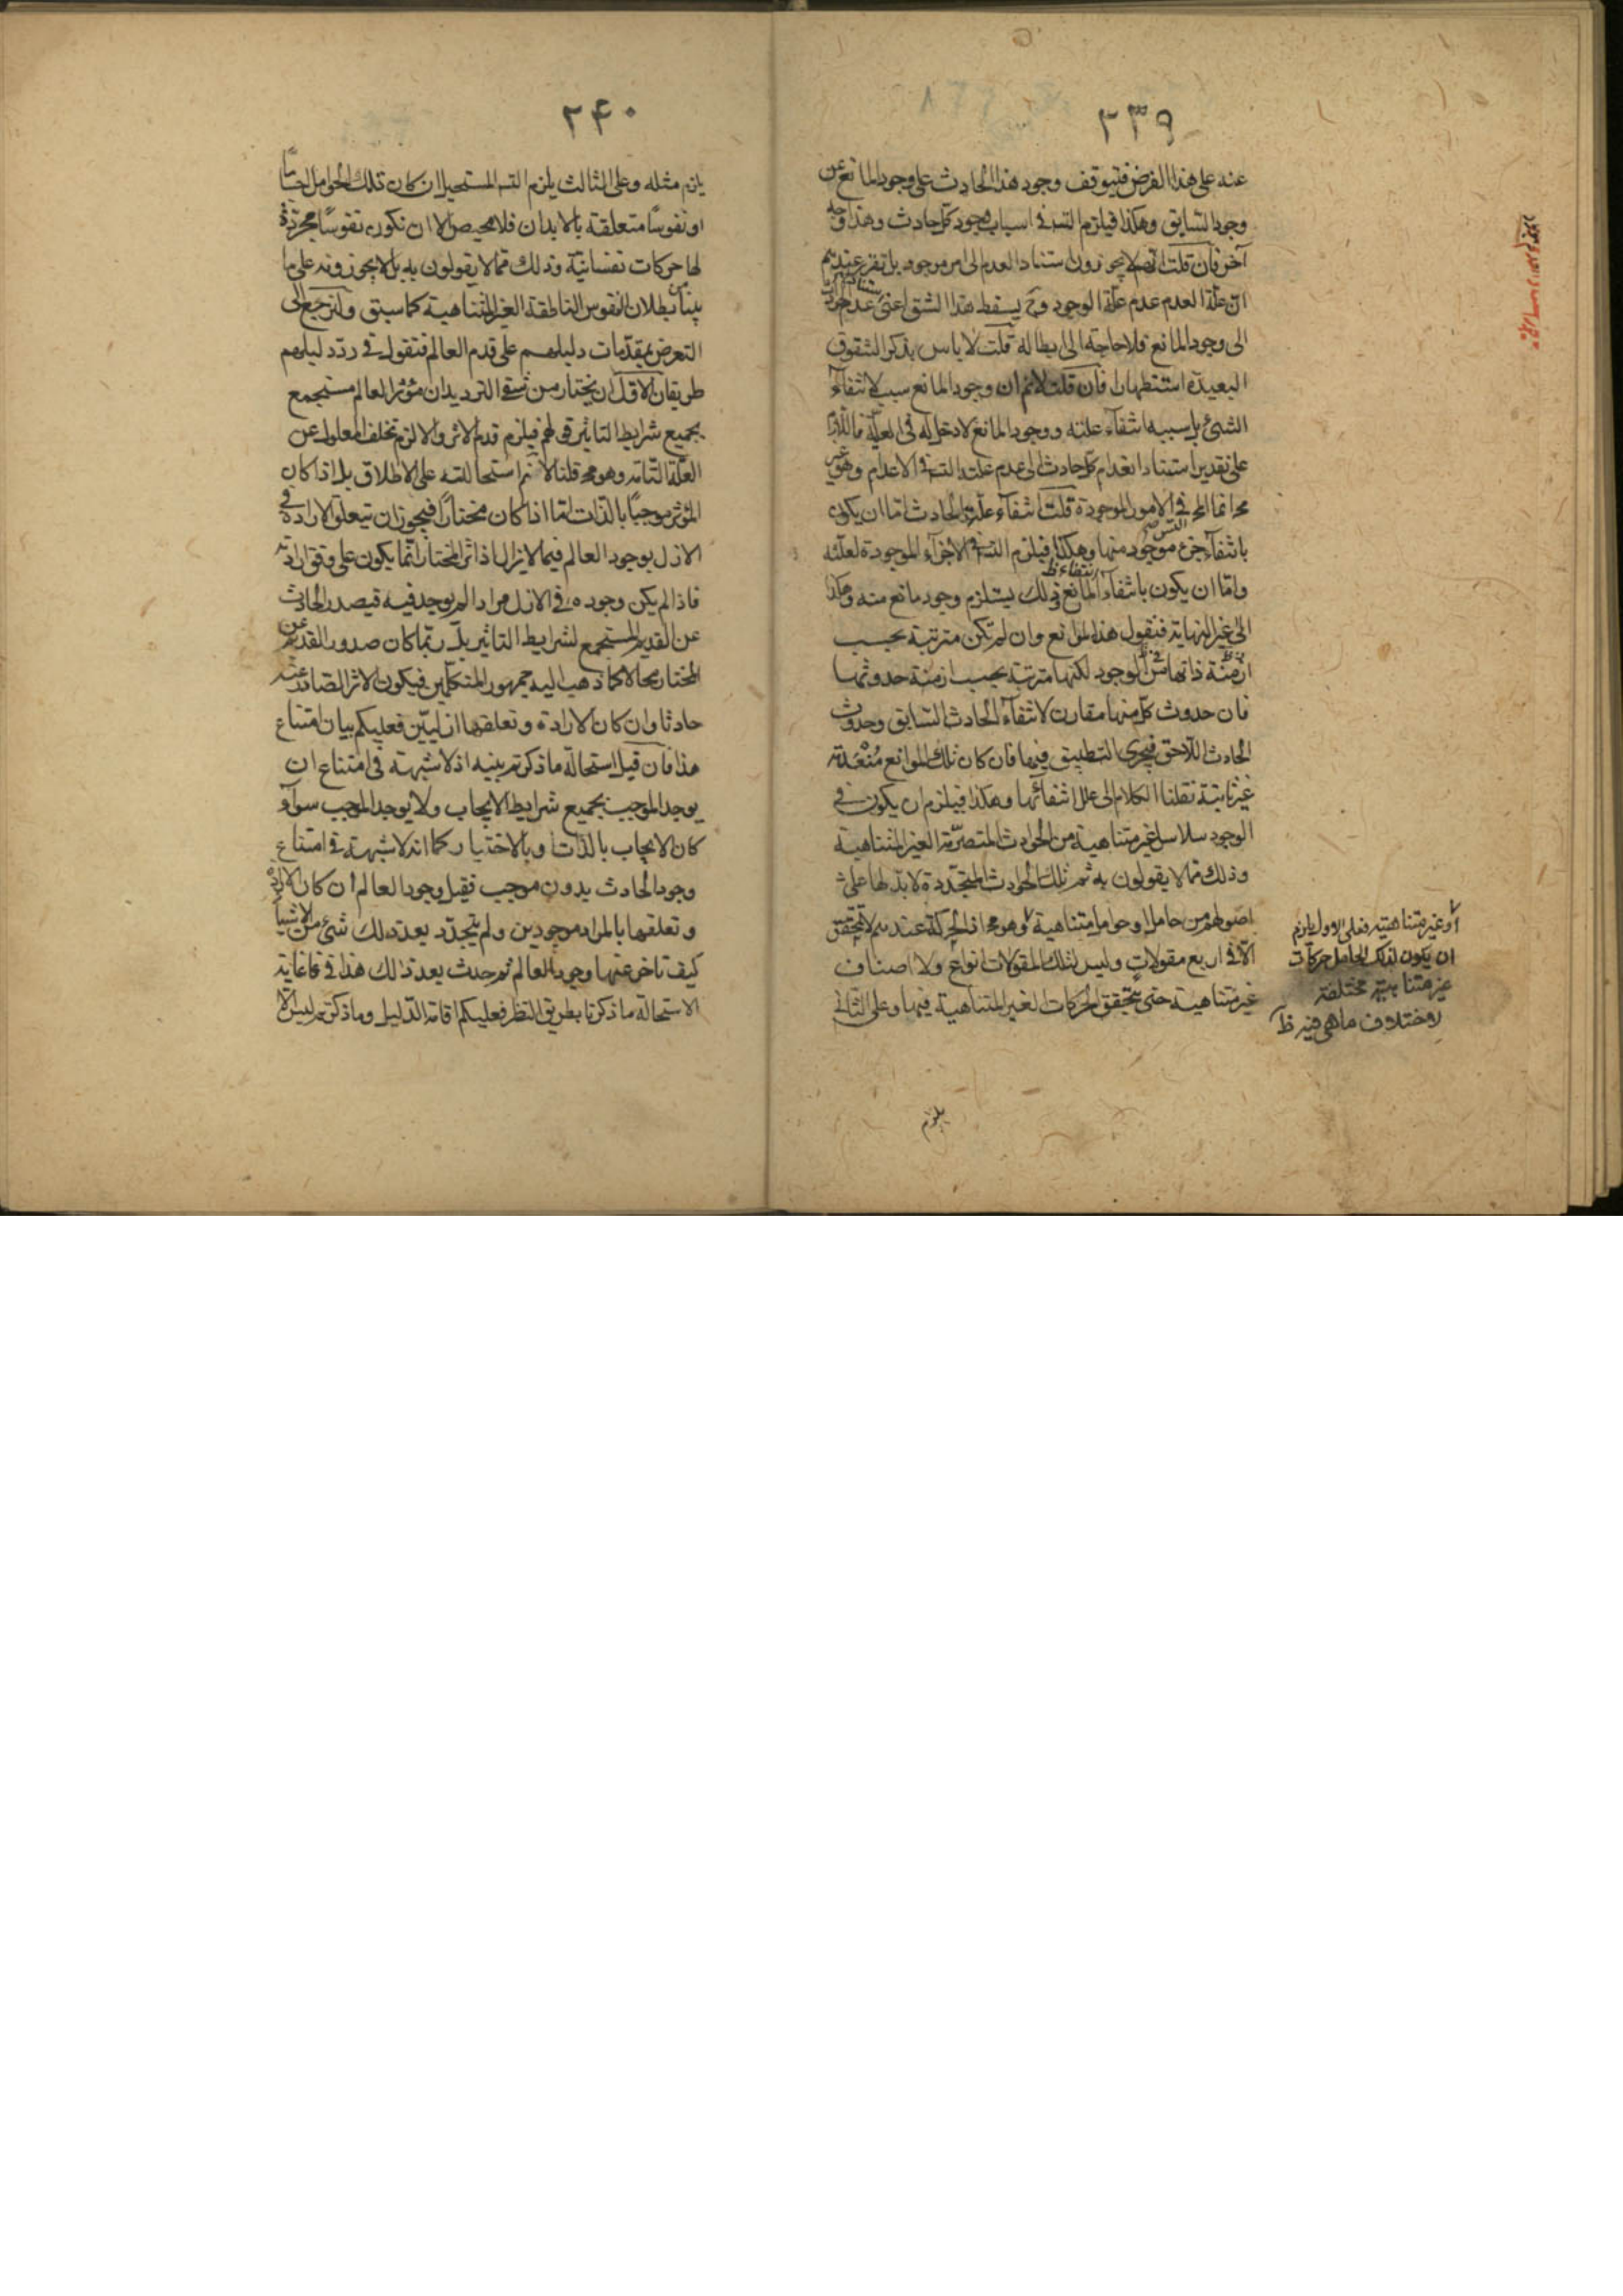 ٢٣٩
عنه على هذا الفرض فيتوقف وجود هذا الحادث على وجود المانع عن
وجود السابق وهكذا فيلزم التسـ في اسباب وجود كل حادث وهذا وجه
آخر فان قلت انهم لا يجوزون استناد العدم الى امر موجود بل تقرر عندهم
ان علة العدم عدم علة الوجود وح يسقط هذا الشق اعني عدم
الى وجود المانع فلا حاجة الى ابطاله قلت لا باس بذكر الشقوق
البعيدة استظهارا فان قلت لانم ان وجود المانع سبب لانتفآء
الشئ بل سببه انتفآء علته ووجود المانع لا دخل له في العلية فاللازم
على تقدير استناد انعدام كل حادث الى عدم علته التسـ في الاعدام وهو غير
مح انما المح في الامور الموجودة قلت انتفآء علة الحادث اما ان يكون
بانتفآء جزء موجود منها وهكذا فيلزم التسـ في الاجزآء الموجودة لعلته
واما ان يكون بانتفآء المانع وذلك يستلزم وجود مانع منه وهكذا
الى غير النهاية فنقول هذه الموانع وان لم تكن مترتبة بحسب
ازمنة ذاتها في الوجود لكنها مترتبة بحسب ازمنة حدوثها
فان حدوث كل منها مقارن لانتفآء الحادث السابق وحدوث
الحادث اللاحق فيجرى التطبيق فيها فان كان تلك الموانع منعدمة
غير ثابتة نقلنا الكلام الى علل انتفائها وهكذا فيلزم ان يكون في
الوجود سلاسل غير متناهية من الحوادث المتصرمة الغير المتناهية
وذلك مما لا يقولون به ثم تلك الحوادث المتجددة لا بد لها على
اصولهم من حامل او حوامل متناهية وهو مح اذ الحركة عندهم لا تتحقق
الا في اربع مقولات وليس لتلك المقولات انواع ولا اصناف
غير متناهية حتى يتحقق الحركات الغير المتناهية فيها وعلى الثاني
او غير متناهية فعلى الاول يلزم
ان يكون لذلك الحامل حركات
غير متناهية مختلفة
لاختلاف ما هي فيه ظ
يلزم
٢٤٠
يلزم مثله وعلى الثالث يلزم التسـ المستحيل ان كان تلك الحوامل اجساما
او نفوسا متعلقة بالابدان فلا محيص الا ان تكون نفوسا مجردة
لها حركات نفسانية وذلك مما لا يقولون به بل لا يجوزونه على ما
بينا من بطلان النفوس الناطقة الغير المتناهية كما سبق ولنرجع الى
التعرض بمقدمات دليلهم على قدم العالم فنقول في رد دليلهم
طريقان الاول ان يختار من شقي الترديد ان مؤثر العالم مستجمع
بجميع شرايط التاثير قولهم فيلزم قدم الاثر والا لزم تخلف المعلول عن
العلة التامة وهو مح قلنا لانم استحالته على الاطلاق بل اذا كان
المؤثر موجبا بالذات اما اذا كان مختارا فيجوز ان تتعلق الارادة في
الازل بوجود العالم فيما لا يزال اذ اثر المختار انما يكون على وفق ارادته
فاذا لم يكن وجوده في الازل مرادا لم يوجد فيه فيصدر الحادث
عن القديم المستجمع لشرايط التاثير بل ربما كان صدور القديم عن
المختار محالا كما ذهب اليه جمهور المتكلمين فيكون الاثر الصادر عنه
حادثا وان كان الارادة وتعلقها ازليين فعليكم بيان امتناع
هذا فان قيل استحالة ما ذكرتم بينه اذ لا شبهة في امتناع ان
يوجد الموجب بجميع شرايط الايجاب ولا يوجد الموجب سوآء
كان الايجاب بالذات او بالاختيار كما انه لا شبهة في امتناع
وجود الحادث بدون موجب فقبل وجود العالم ان كان الارادة
وتعلقها بالمراد موجودين ولم يتجدد بعد ذلك شئ من الاشيآء
كيف تاخر عنها وجود العالم ثم حدث بعد ذلك هذا في غاية
الاستحالة ما ذكرنا بطريق النظر فعليكم اقامة الدليل وما ذكرتم ليس الا